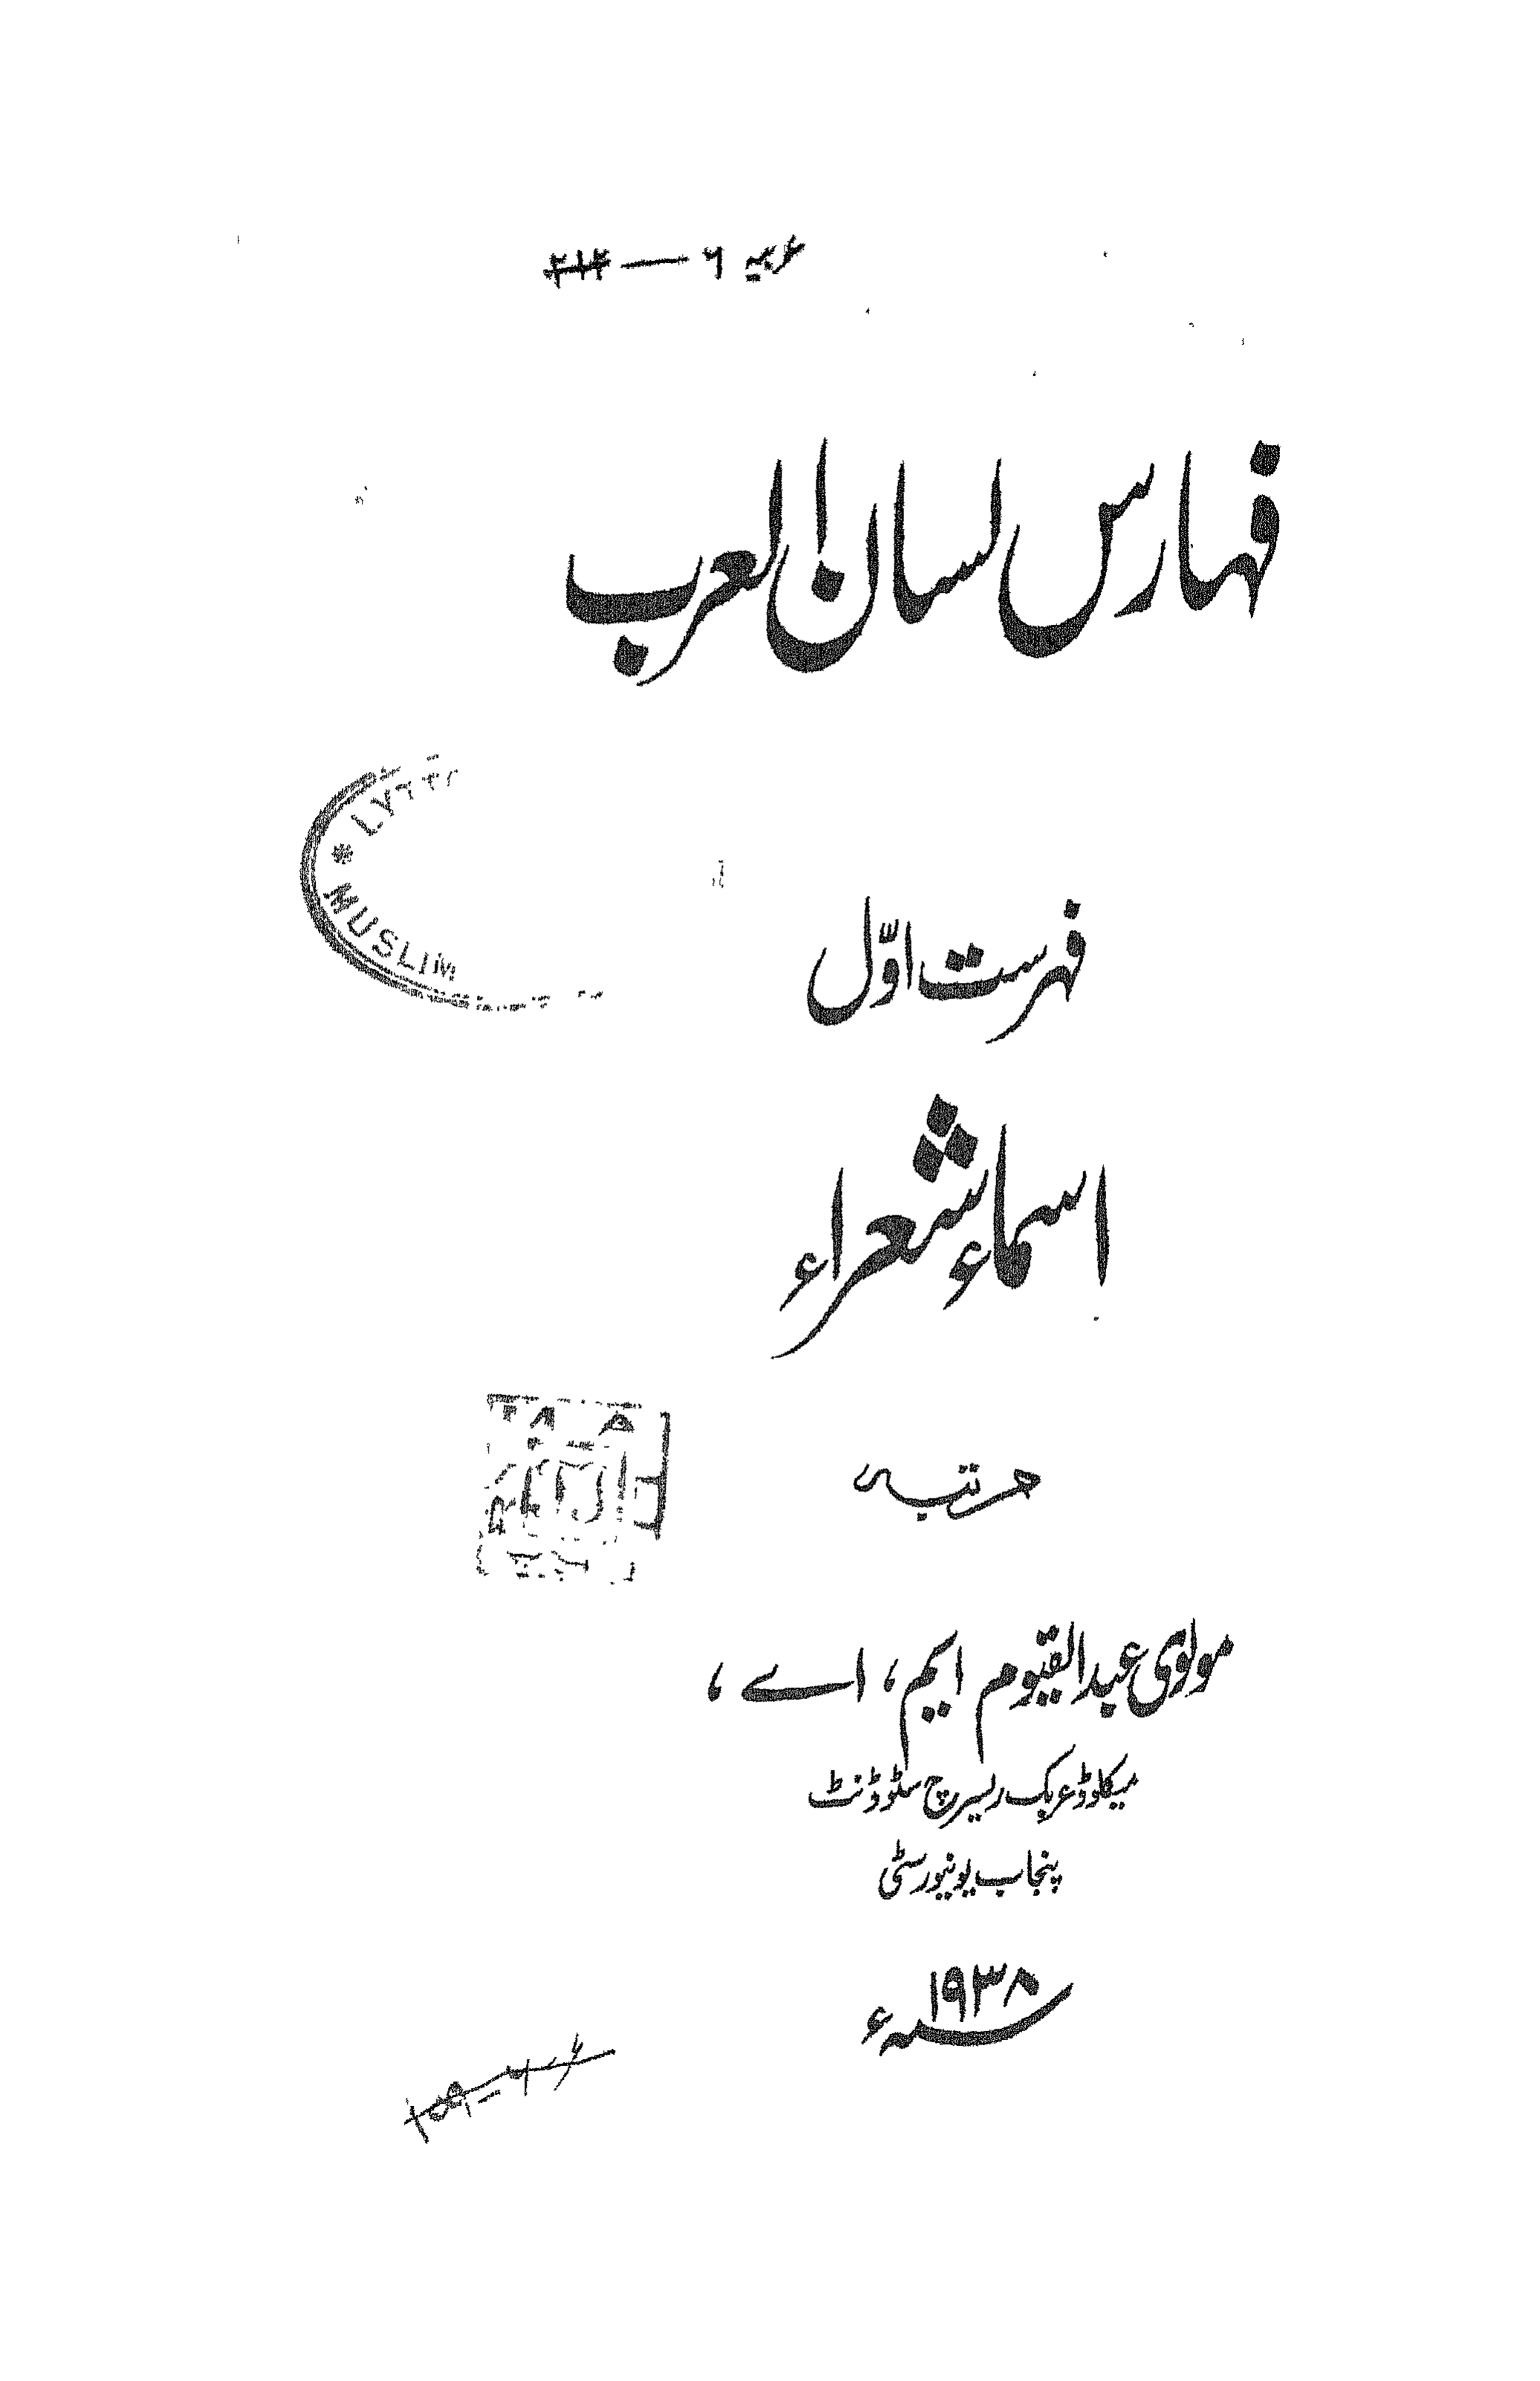 عربیہ ٦ — ٢١٢
فہارس لسان العرب
LYTT
MUSLIM
فہرست اوّل
اسماءِ شعراء
مرتبہ
مولوی عبدالقیوم ایم، اے،
میکلوڈ عربک ریسرچ سٹوڈنٹ
پنجاب یونیورسٹی
سنہ ۱۹۳۸ء